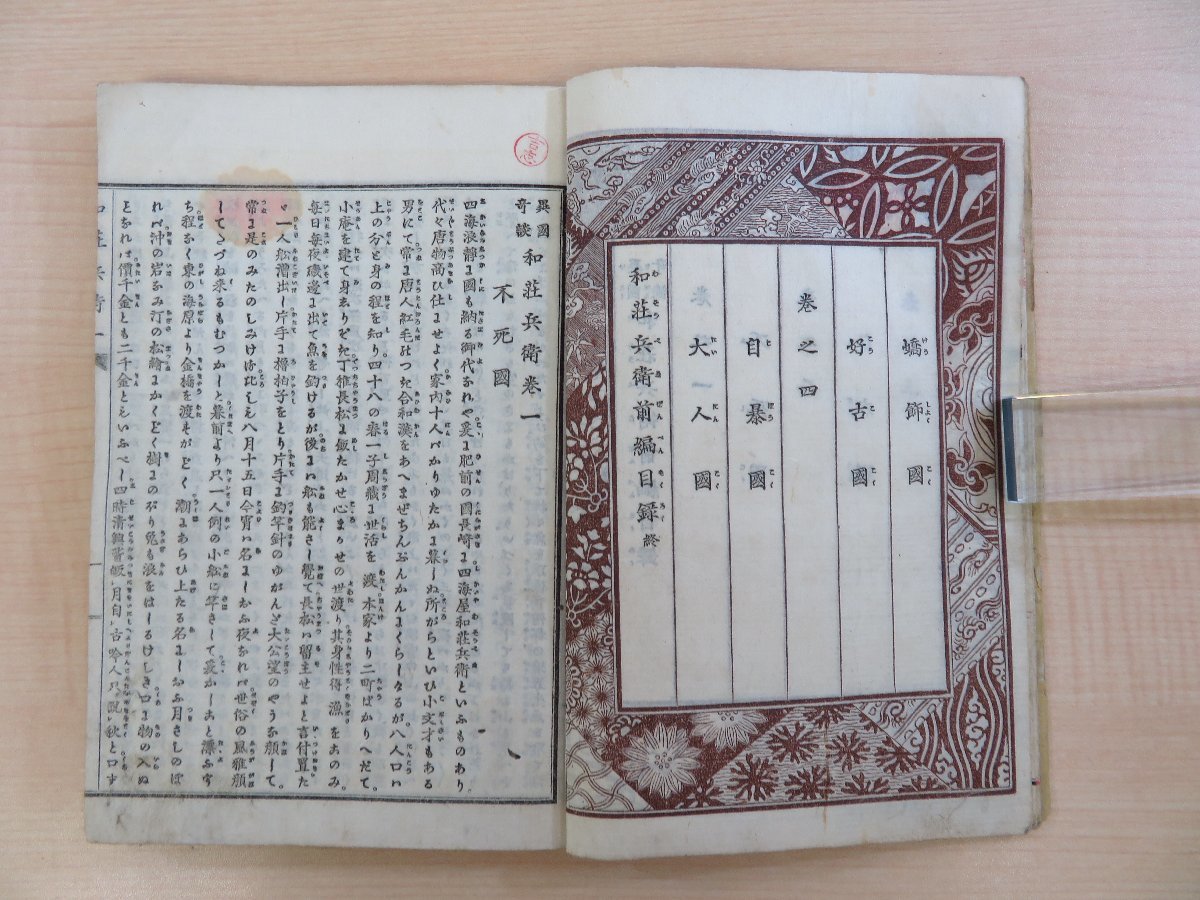 蟜飾國
好古國
巻之四
自暴國
大人國
和荘兵衛前編目録終
異國奇談 和荘兵衛巻一
不死國
四海浪静に國も納る御代なれや爰に肥前の國長崎に四海屋和荘兵衛といふものあり
代々唐物商ひ仕ませよく家内十人ばかりゆたかに暮しぬ所がらといひ小文才もある
男にて常に唐人紅毛のつた合和漢をあへまぜちんぷんかんまくらしたるが八人口は
上の方と身の程を知り四十八の春一子周蔵に世活を渡本家より二町ばかりへだて
小庵を建て身より丁稚長松に飯たかせ心まかせの世渡り其身性得漁をおのみ
毎日毎夜磯邊に出て魚を釣けるが後には船も能さし覺て長松は留主せよと言付置た
一人船漕出し片手に櫓拍子をとり片手に釣竿針のゆがんだ大公望のやうな顔して
常に是のみたのしみけれ比しも八月十五日今宵は名にしおふ夜なれば世俗の風雅顔
してたづね來るもむつかしと暮前より只一人例の小船に竿さして爰かしこと漂ふ
ち程なく東の海原より金橋を渡すがごとく潮にあらひ上たる名にしおふ月さしのぼ
れば沖の岩なみ汀の松繪にかくごとく樹にのぼり兎も浪をはしるけしき口に物の入ぬ
となれば價千金とも二千金ともいふべし四時清興